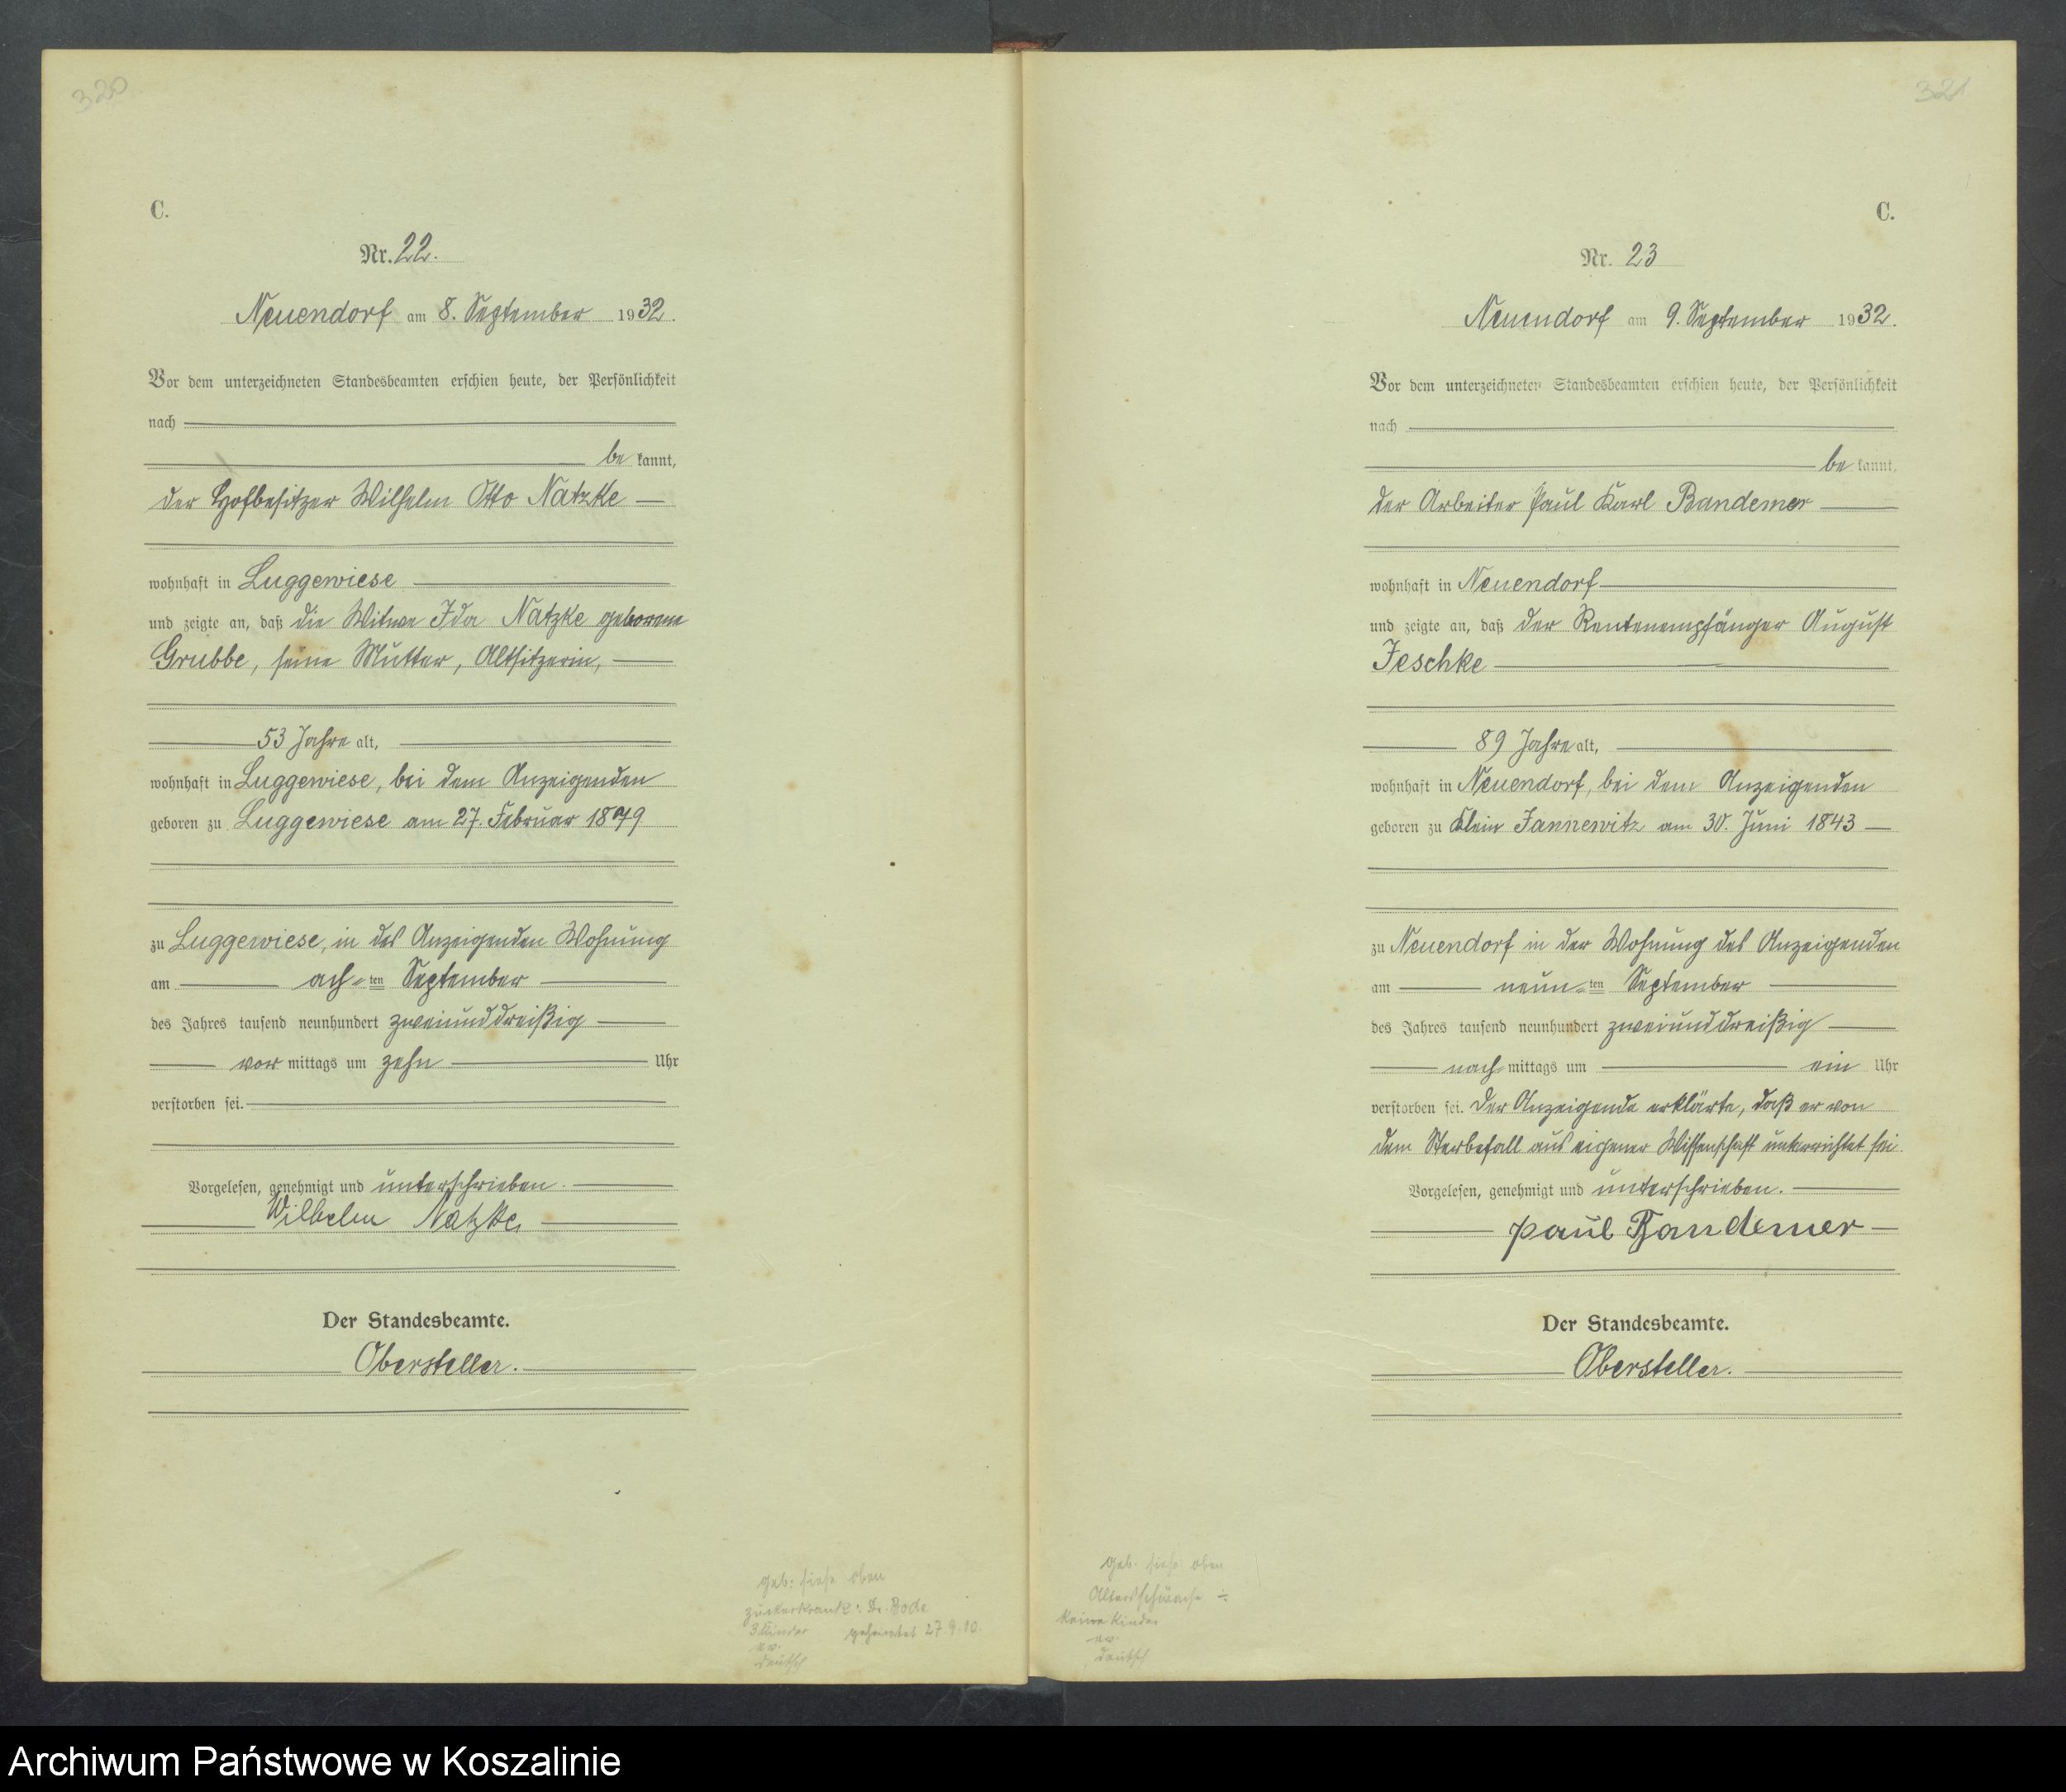 320
C.
Nr. 22.
Neuendorf am 8. September 1932.
Vor dem unterzeichneten Standesbeamten erschien heute, der Persönlichkeit
nach
be kannt,
der Hofbesitzer Wilhelm Otto Natzke
wohnhaft in Luggewiese
und zeigte an, daß die Witwe Ida Natzke geborene
Grubbe, seine Mutter, Altsitzerin,
53 Jahre alt,
wohnhaft in Luggewiese, bei dem Anzeigenden
geboren zu Luggewiese am 27. Februar 1879
zu Luggewiese, in des Anzeigenden Wohnung
am ach-ten September
des Jahres tausend neunhundert zweiunddreißig
vor mittags um zehn Uhr
verstorben sei.
Vorgelesen, genehmigt und unterschrieben.
Wilhelm Natzke
Der Standesbeamte.
Obersteller.
geb: siehe oben
zuckerkrank: Dr. Bode
3 Kinder geheiratet 27.9.10.
ev.
deutsch
321
C.
Nr. 23
Neuendorf am 9. September 1932.
Vor dem unterzeichneten Standesbeamten erschien heute, der Persönlichkeit
nach
be kannt,
der Arbeiter Paul Karl Bandemer
wohnhaft in Neuendorf
und zeigte an, daß der Rentenempfänger August
Jeschke
89 Jahre alt,
wohnhaft in Neuendorf, bei dem Anzeigenden
geboren zu Klein Jannewitz am 30. Juni 1843
zu Neuendorf in der Wohnung des Anzeigenden
am neun-ten September
des Jahres tausend neunhundert zweiunddreißig
nach mittags um ein Uhr
verstorben sei. Der Anzeigende erklärte, daß er von
dem Sterbefall aus eigener Wissenschaft unterrichtet sei.
Vorgelesen, genehmigt und unterschrieben.
Paul Bandemer
Der Standesbeamte.
Obersteller.
geb. siehe oben
Altersschwäche ÷
keine Kinder
ev.
deutsch
Archiwum Państwowe w Koszalinie